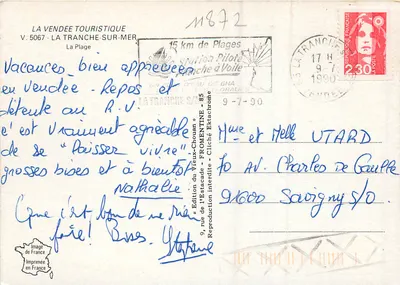 11872
LA VENDÉE TOURISTIQUE
V. 5067 - LA TRANCHE-SUR-MER
La Plage
15 km de Plages
Station Pilote
LA TRANCHE S/
9-7-90
LA TRANCHE
17 H
9-7
1990
2,30
Vacances bien appréciées
en Vendée - Repos et
détente au R.V.
c'est vraiment agréable
de se "laisser vivre"
grosses bises et à bientôt
Nathalie
Que c'est bon de ne rien
faire! Bises. Stéphane
Edition du Vieux-Chouan - FROMENTINE - 85
9, rue de l'Estacade -
Reproduction interdite - Cliché Ektachrome
Mme et Melle UTARD
10 AV. Charles De Gaulle
91600 Savigny S/O
Image
de France
Imprimée
en France